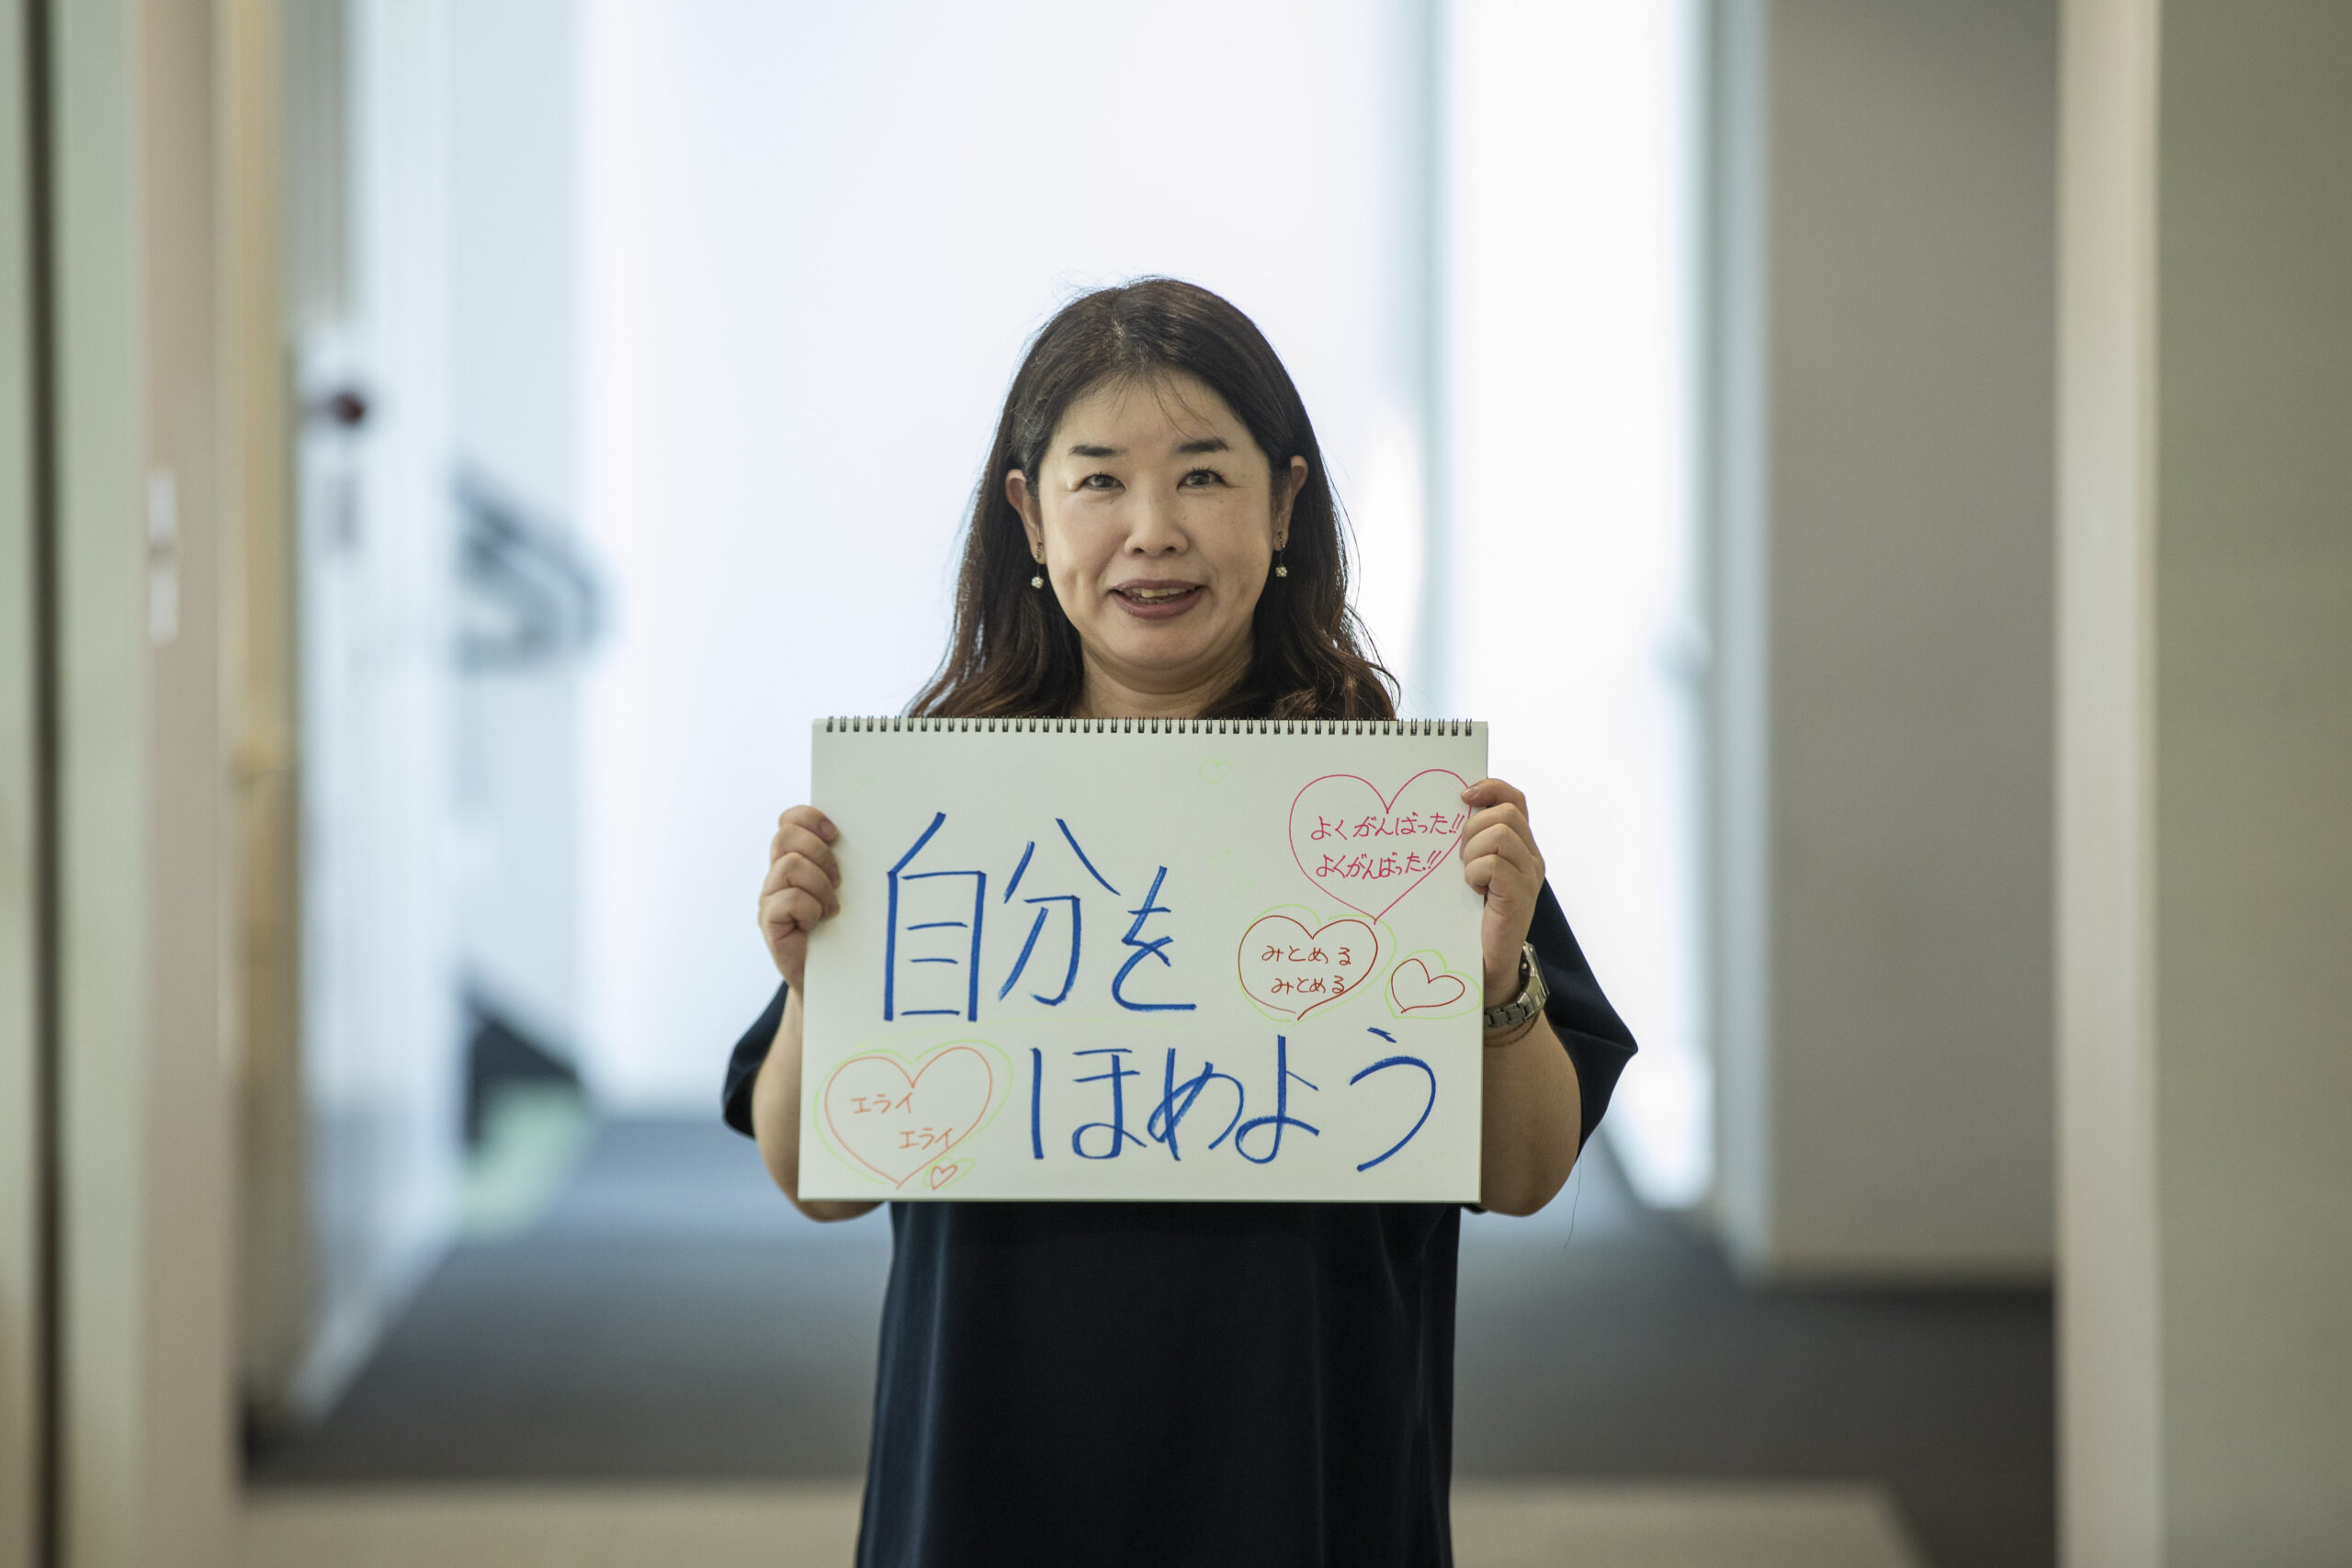 自分を
ほめよう
よくがんばった!!
よくがんばった!!
みとめる
みとめる
エライ
エライ